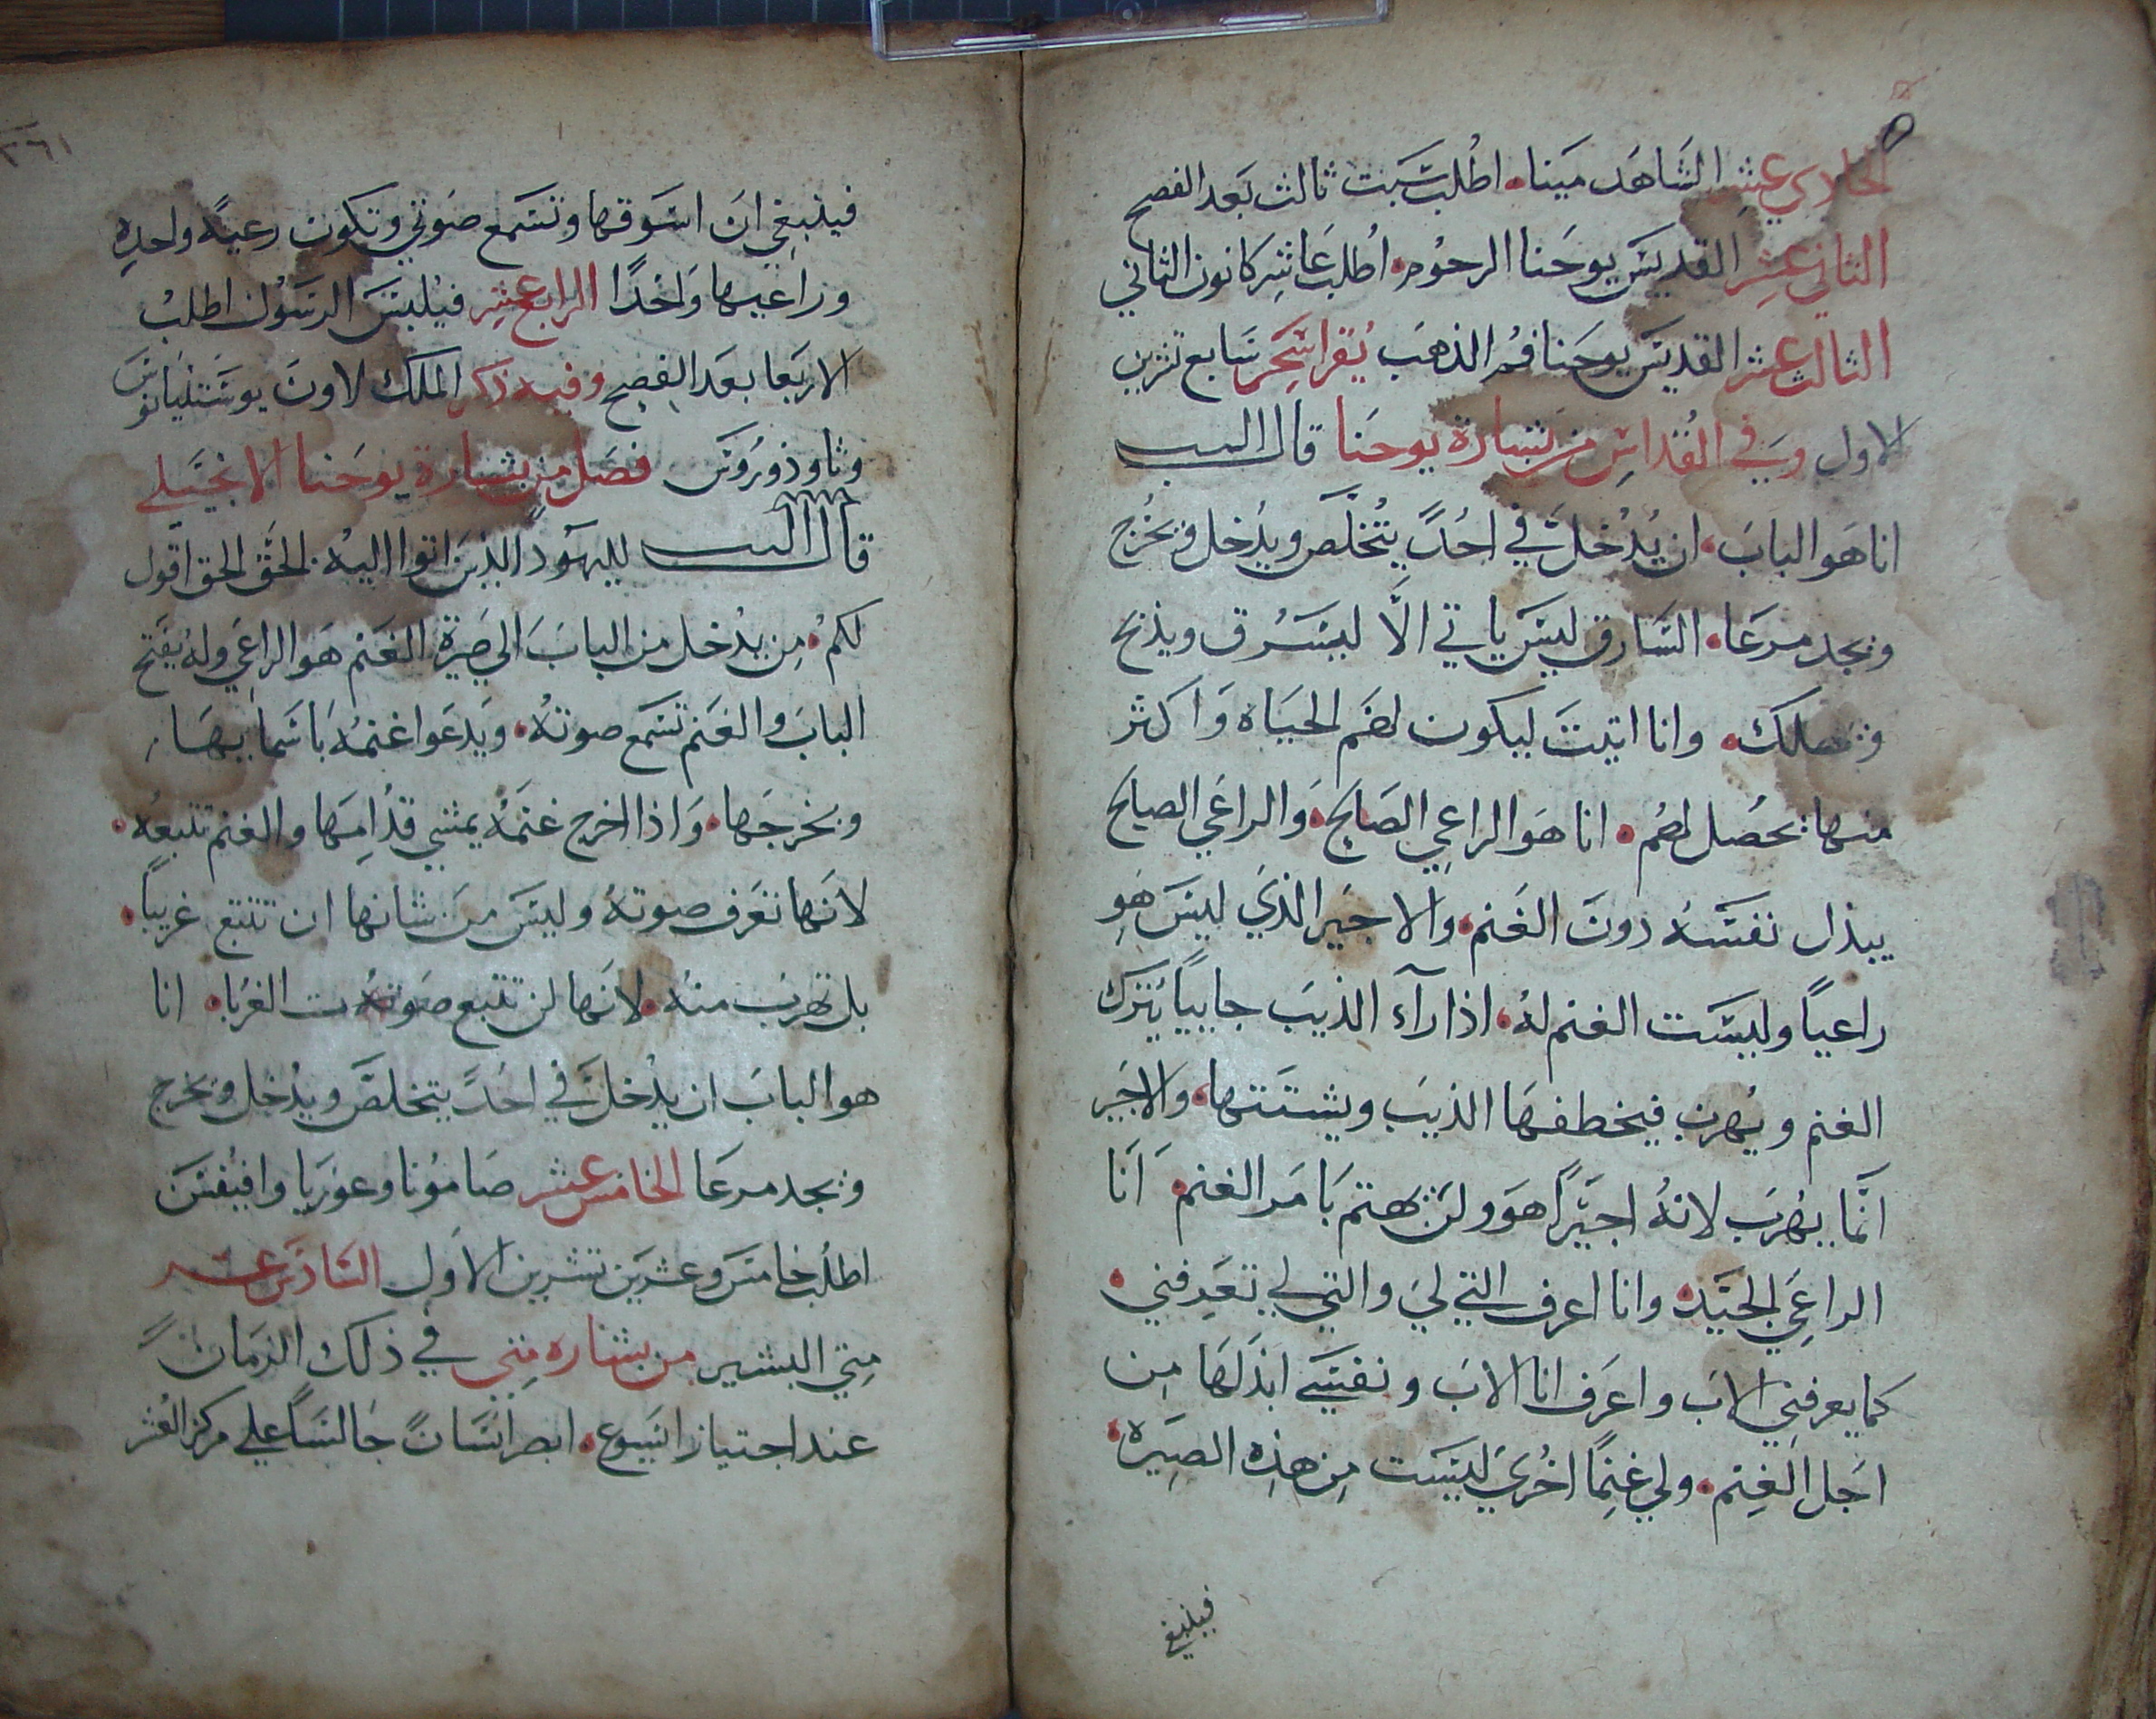 الحادي عشر الشاهد مينا اطلب سبت ثالث بعد الفصح
الثاني عشر القديس يوحنا الرحوم اطلب عاشر كانون الثاني
الثالث عشر القديس يوحنا فم الذهب يقرا سحر سابع تشرين
الاول وفي القداس من بشارة يوحنا قال الرب
انا هو الباب ان يدخل في احد يتخلص ويدخل ويخرج
ويجد مرعا السارق ليس ياتي الا ليسرق ويذبح
ويهلك وانا اتيت ليكون لهم الحياه واكثر
منها يحصل لهم انا هو الراعي الصالح والراعي الصالح
يبذل نفسه دون الغنم والاجير الذي ليس هو
راعيا وليست الغنم له اذا رآء الذيب جاييا يترك
الغنم ويهرب فيخطفها الذيب ويشتتها والاجير
انما يهرب لانه اجيرا هو ولن يهتم بامر الغنم انا
الراعي الجيد وانا اعرف التي لي والتي لي تعرفني
كما يعرفني الاب واعرف انا الاب ونفسي ابذلها من
اجل الغنم ولي غنما اخري ليست من هذه الصيره
فينبغي
٢٦١
فينبغي ان اسوقها وتسمع صوتي وتكون رعية واحده
وراعيها واحدا الرابع عشر فيلبس الرسول اطلب
الاربعا بعد الفصح وفيه ذكر الملك لاون يوستنيانوس
وثاوذوروس فصل من بشارة يوحنا الانجيلي
قال الرب لليهود الذين اتوا اليه الحق الحق اقول
لكم من يدخل من الباب الي صيرة الغنم هو الراعي وله يفتح
الباب والغنم تسمع صوته ويدعوا غنمه باسمايها
ويخرجها واذا اخرج غنمه يمشي قدامها والغنم تتبعه
لانها تعرف صوته وليس من شانها ان تتبع غريبا
بل تهرب منه لانها لن تتبع صوت الغربا انا
هو الباب ان يدخل في احد يتخلص ويدخل ويخرج
ويجد مرعا الخامس عشر صامونا وغوريا وافيفس
اطلب خامس وعشرين تشرين الاول السادس عشر
متي البشير من بشاره متي في ذلك الزمان
عند اجتياز ايسوع ابصر انسان جالسا علي مركز العشر